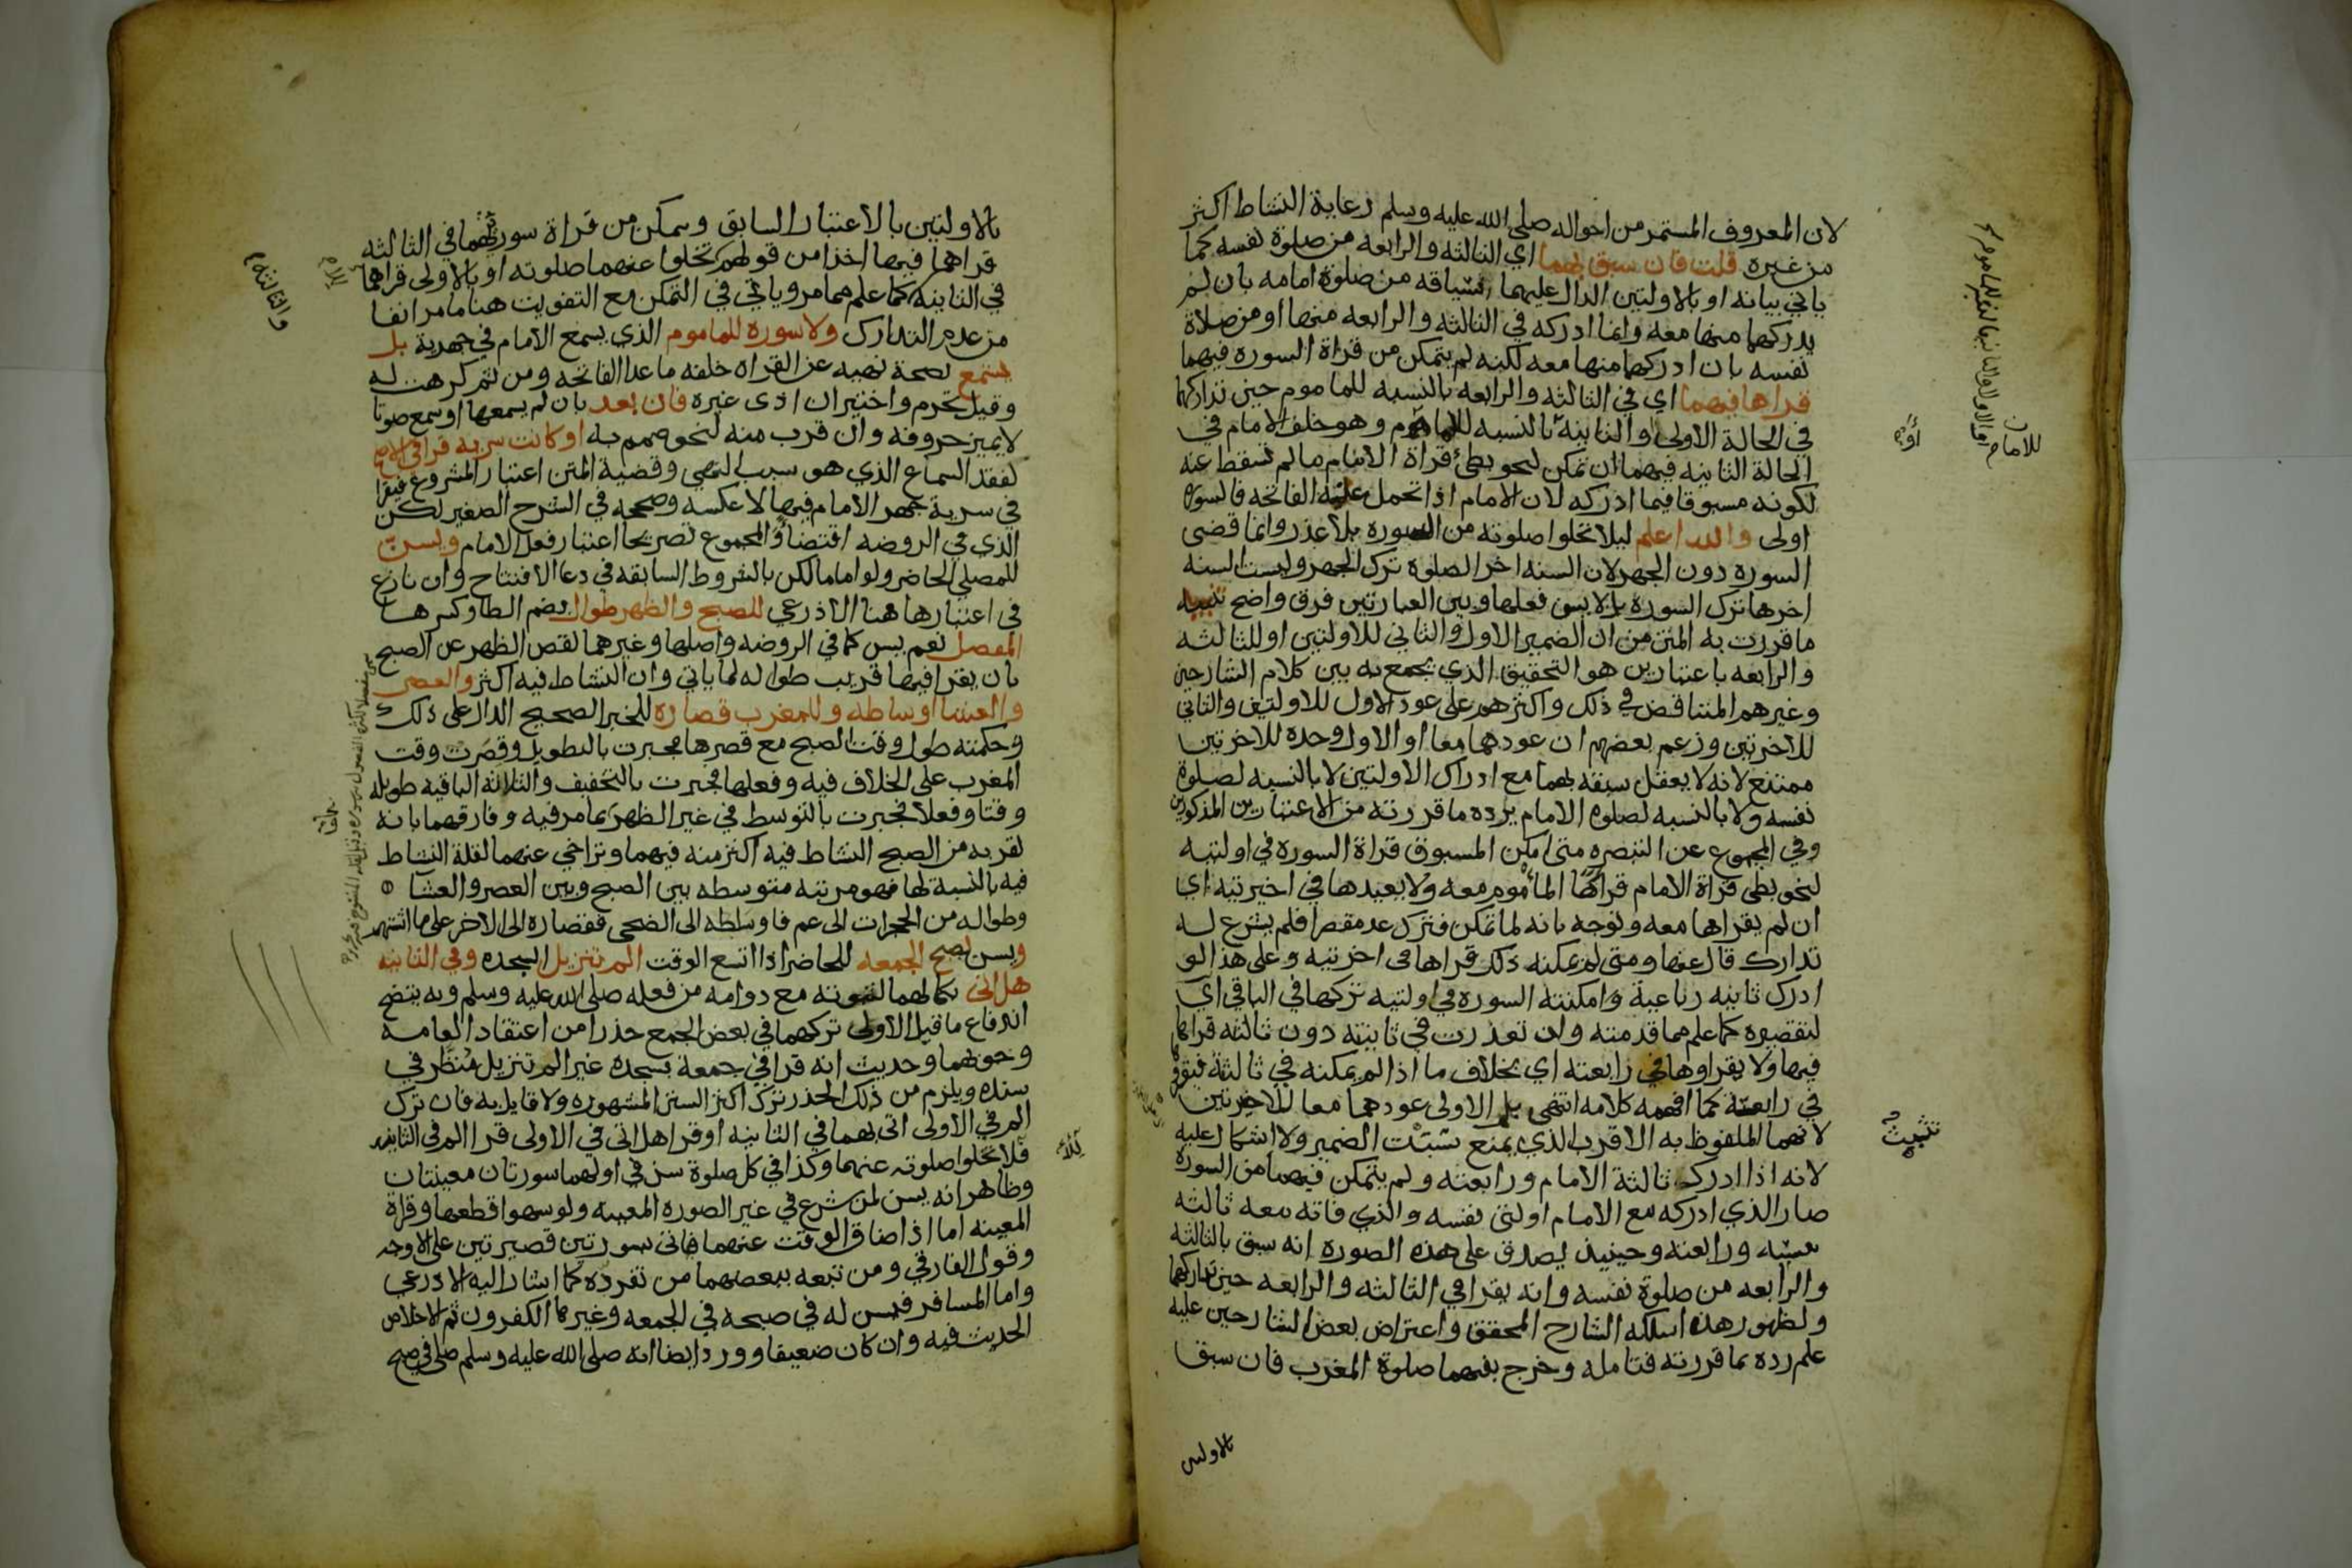 لان المعروف المستمر من احواله صلى الله عليه وسلم رعاية النشاط اكثر
من غيره قلت فان سبق بهما اي الثالثه والرابعه من صلوة نفسه كما
ياتي بيانه او بالاولتين الدال عليهما سياقه من صلوة امامه بان لم
يدركهما منها معه وانما ادركه في الثالثه والرابعه منها او من صلاة
نفسه بان ادركهما منها معه لكنه لم يتمكن من قراة السوره فيهما
قراها فيهما اي في الثالثه والرابعه بالنسبه للماموم حين تداركهما
في الحالة الاولى او الثانيه بالنسبه للماموم وهو خلف الامام في
الحالة الثانيه فيهما ان تمكن لنحو بطئ قراة الامام ما لم تسقط عنه
لكونه مسبوقا فيما ادركه لان الامام اذا تحمل عنه الفاتحه فالسوره
اولى والله اعلم ليلا تخلوا صلوته من السوره بلا عذر وانما قضى
السوره دون الجهر لان السنه اخر الصلوة ترك الجهر وليست السنه
اخرها ترك السوره بل لا يسن فعلها وبين العبارتين فرق واضح تنبيه
ما قررت به المتن من ان الضمير الاول والثاني للاولتين او للثالثه
والرابعه باعتبارين هو التحقيق الذي يجمع به بين كلام الشارحين
وغيرهم المتناقض في ذلك واكثرهم على عود الاول للاولتين والثاني
للاخرتين وزعم بعضهم ان عودهما معا او الاول وحده للاخرتين
ممتنع لانه لا يعقل سبقه بهما مع ادراك الاولتين لا بالنسبه لصلوة
نفسه ولا بالنسبه لصلوه الامام يرده ما قررته من الاعتبارين المذكورين
وفي المجموع عن التبصره متى امكن المسبوق قراة السوره في اولتيه
لنحو بطى قراة الامام قراها الماموم معه ولا يعيدها في اخيرتيه اي
ان لم يقراها معه ويوجه بانه لما تمكن فترك عد مقصرا فلم يشرع له
تدارك قال عنها ومتى لم يمكنه ذلك قراها في اخرتيه وعلى هذا لو
ادرك ثانيه رباعية وامكنته السوره في اولتيه تركها في الباقي اي
لتقصيره كما علم مما قدمته وان تعذرت في ثانيته دون ثالثته قراها
فيها ولا يقراوها في رابعته اي بخلاف ما اذا لم يمكنه في ثالثة فيقراها
في رابعته كما افهمه كلامه انتهى بل الاولى عودهما معا للاخرتين
لانهما الملفوظ به الاقرب الذي يمنع تشتت الضمير ولا اشكال عليه
لانه اذا ادرك ثالثة الامام ورابعته ولم يتمكن فيهما من السوره
صار الذي ادركه مع الامام اولتى نفسه والذي فاته معه ثالثه
نفسه ورابعته وحينيذ يصدق على هذه الصوره انه سبق بالثالثه
والرابعه من صلوة نفسه وانه يقرا في الثالثه والرابعه حين تداركهما
ولظهور هذا سلكه الشارح المحقق واعتراض بعض الشارحين عليه
علم رده بما قررته فتامله وخرج بفيهما صلوة المغرب فان سبق
بالاولتين
تشتيت
بالاولتين بالاعتبار السابق وتمكن من قراة سورتهما في الثالثه
قراهما فيها اخذا من قولهم تخلوا عنهما صلوته او بالاولى قراهما
في الثانيه كما علم مما مر وياتي في التمكن مع التفويت هنا ما مر انفا
من عدم التدارك ولا سوره للماموم الذي يسمع الامام في جهرية بل
يستمع لصحة نهيه عن القراه خلفه ما عدا الفاتحه ومن ثم كرهت له
وقيل تحرم واختير ان اذى غيره فان بعد بان لم يسمعها او سمع صوتا
لا يميز حروفه وان قرب منه لنحو صمم به او كانت سريه قرا في الاصح
لفقد السماع الذي هو سبب النهي وقضية المتن اعتبار المشروع فيقرا
في سرية جهر الامام فيها لا عكسه وصححه في الشرح الصغير لكن
الذي في الروضه اقتضاوا المجموع تصريحا اعتبار فعل الامام ويسن
للمصلي الحاضر ولو اماما لكن بالشروط السابقه في دعا الافتتاح وان نازع
في اعتبارها هنا الاذرعي للصبح والظهر طوال بضم الطا وكسرها
المفصل نعم يسن كما في الروضه واصلها وغيرهما نقص الظهر عن الصبح
بان يقرا فيها قريب طواله لما ياتي وان النشاط فيه اكثر والعصر
والعشا اوساطه وللمغرب قصاره للخبر الصحيح الدال على ذلك
وحكمته طول وقت الصبح مع قصرها فجبرت بالتطويل وقصرت وقت
المغرب على الخلاف فيه وفعلها فجبرت بالتخفيف والثلاثه الباقيه طويله
وقتا وفعلا فجبرت بالتوسط في غير الظهر بما مر فيه وفارقهما بانه
لقربه من الصبح النشاط فيه اكثر منه فيهما وتراخي عنهما لقلة النشاط
فيه بالنسبة لها فهو مرتبه متوسطه بين الصبح وبين العصر والعشا
وطواله من الحجرات الى عم فاوساطه الى الضحى فقصاره الى الاخر على ما اشتهر
ويسن لصبح الجمعه للحاضر اذا اتسع الوقت الم تنزيل السجده وفي الثانيه
هل اتى بكمالهما لثبوته مع دوامه من فعله صلى الله عليه وسلم وبه يتضح
اندفاع ما قيل الاولى تركهما في بعض الجمع حذرا من اعتقاد العامه
وجوبهما وحديث انه قرا في جمعة بسجده غير الم تنزيل منظر في
سنده ويلزم من ذلك الحذر ترك اكثر السنن المشهوره ولا قايل به فان ترك
الم في الاولى اتى بهما في الثانيه او قرا هل اتى في الاولى قرا الم في الثانيه
فلا تخلوا صلوته عنهما وكذا في كل صلوة سن في اولهما سورتان معينتان
وظاهر انه يسن لمن شرع في غير الصوره المعينه ولو سهوا قطعها وقراة
المعينه اما اذا ضاق الوقت عنهما فاتى سورتين قصيرتين على الاوجه
وقول الفارقي ومن تبعه ببعضهما من تفرده كما اشار اليه الاذرعي
واما المسافر فيسن له في صبحه في الجمعه وغيرها الكفرون ثم الاخلاص
الحديث فيه وان كان ضعيفا وورد ايضا انه صلى الله عليه وسلم صلى في صبح
والثانيه